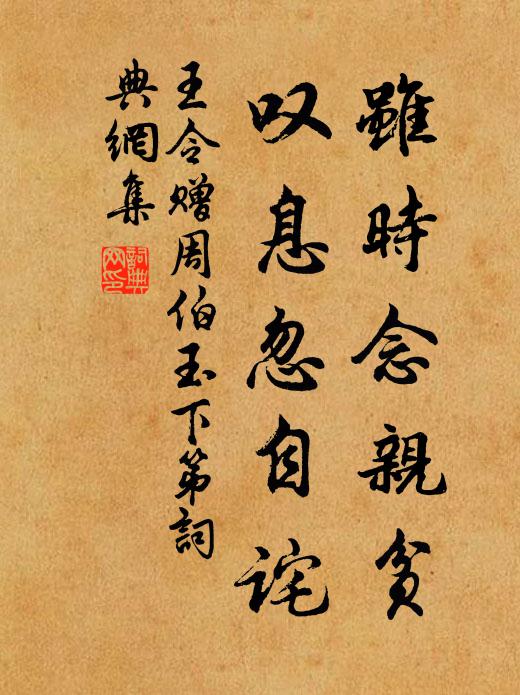 雖時念親貧
叹息忽自詫
王令赠周伯玉下第詞
典網集
詞典
网印